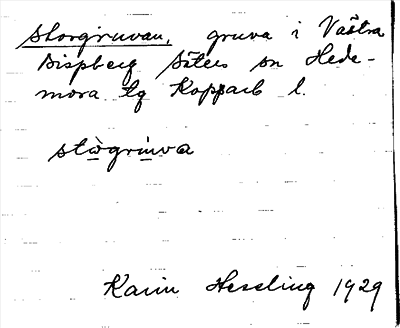 Storgruvan, gruva i Västra
Bispberg Säters sn Hede-
mora tg Kopparb l.
stògrùva
Karin Hessling 1929